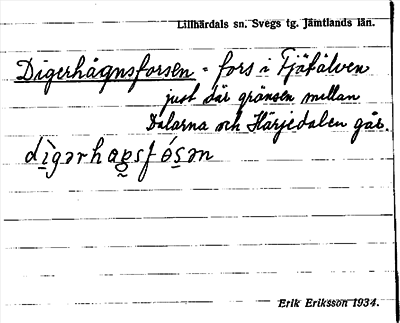 Lillhärdals sn. Svegs tg. Jämtlands län.
Digerhågnsforsen - fors i Fjätälven
just där gränsen mellan
Dalarna och Härjedalen går.
Erik Eriksson 1934.